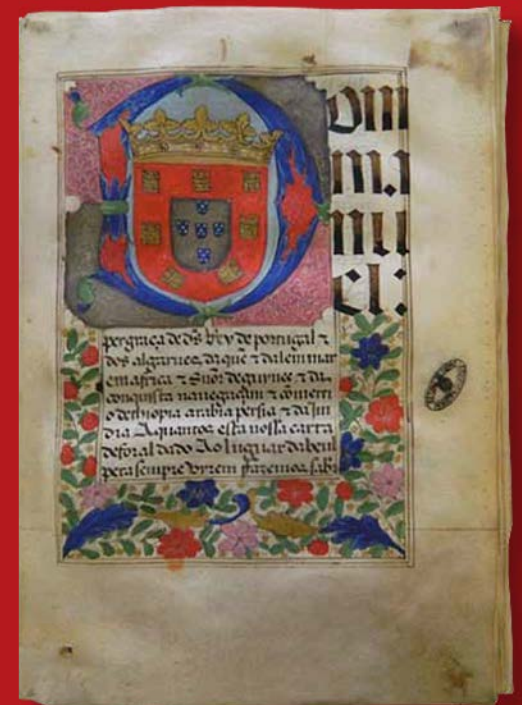 Dom
m.
nu
el:
per graça de ds Rey de portugal ⁊
dos algarues, da quẽ ⁊ dalem mar
em africa ⁊ Sñor de guynee ⁊ da
conquista nauegaçam ⁊ cõmerci
o dethiopia arabia persia ⁊ da Jn
dia A quantos esta nossa carta
de foral dado Ao luguar da
pera sempre virem fazemos